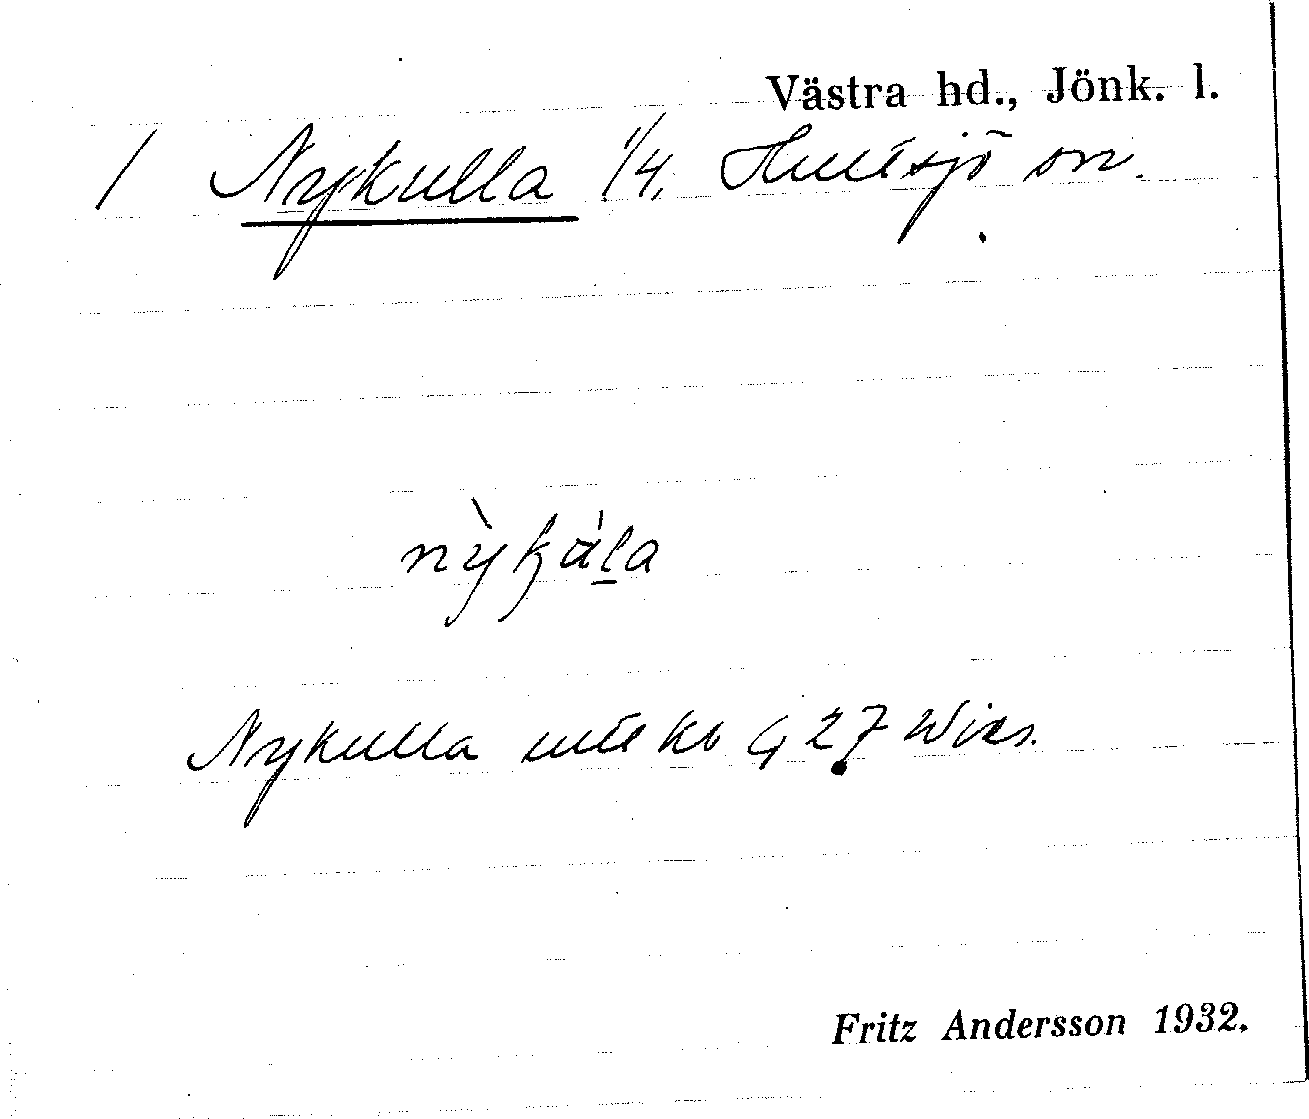 Västra hd., Jönk. l.
/ Nykulla 1/4. Hultsjö sn.
nỳkála
Nykulla utt kb G 27
Fritz Andersson 1932.